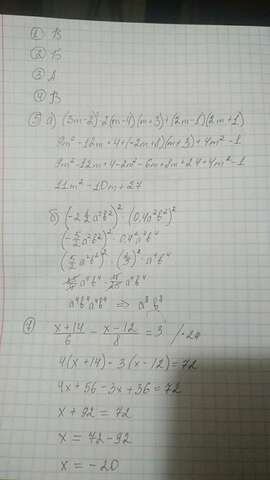 ① В
② Б
③ А
④ В
⑤ а) (3m-2)²-2(m-4)(m+3)+(2m-1)(2m+1)
9m²-12m+4+(-2m+8)(m+3)+4m²-1
9m²-12m+4-2m²-6m+8m+24+4m²-1
11m²-10m+27
б) (-2 1/2 a²b²)² · (0,4a²b²)²
(-5/2 a²b²)² · 0,4²a²b⁴
(5/2 a²b²)² · (2/5)² · a²b⁴
25/4 a⁴b⁴ · 4/25 a⁴b⁴
a⁴b⁴a⁴b⁴ ⇒ a⁸b⁸
⑦ x+14/6 - x-12/8 = 3 /·24
4(x+14)-3(x-12)=72
4x+56-3x+36=72
x+92=72
x=72-92
x=-20